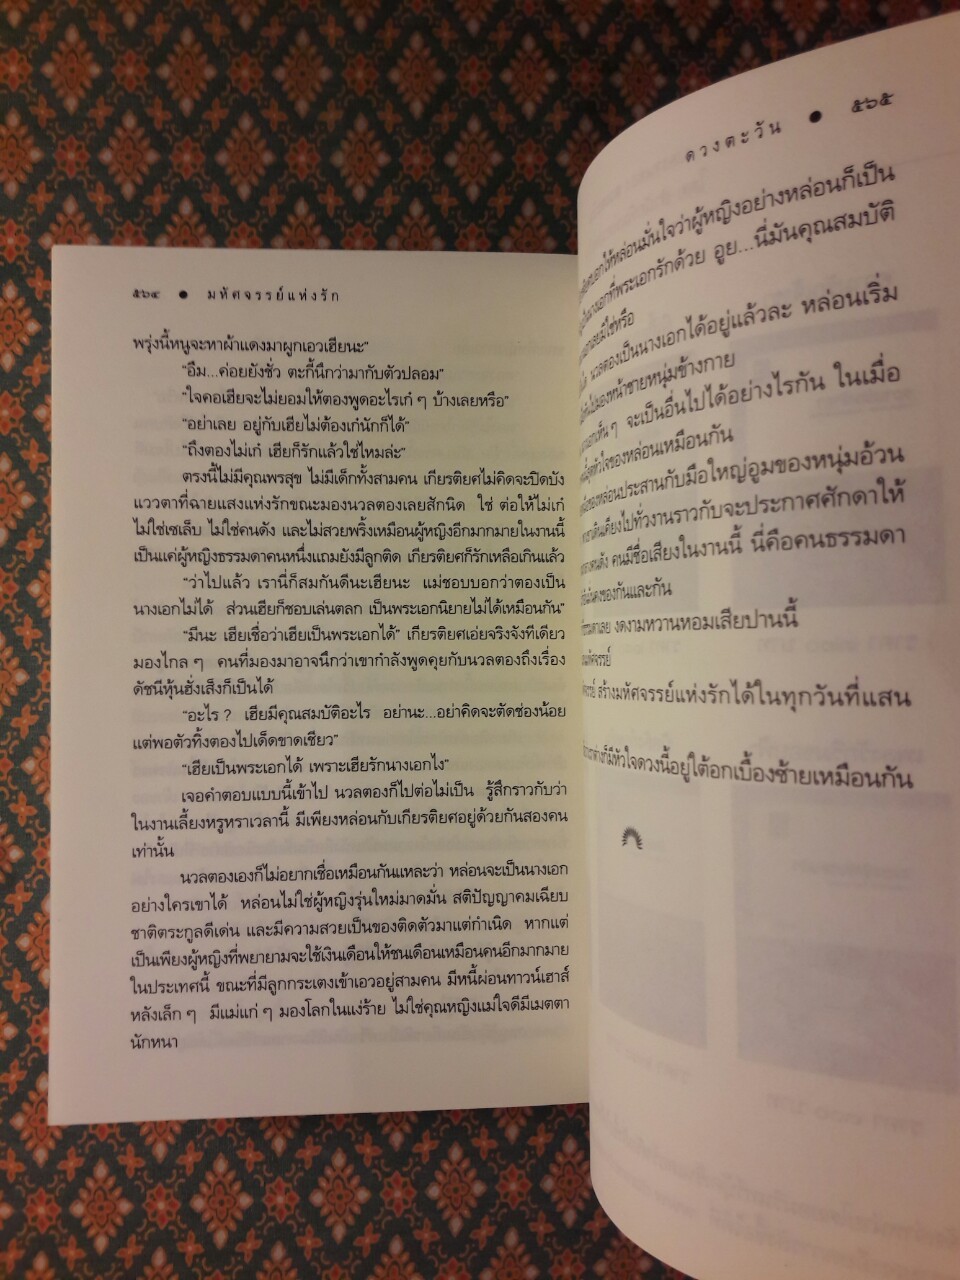 ๕๖๔ ● มหัศจรรย์แห่งรัก
พรุ่งนี้หนูจะหาผ้าแดงมาผูกเอวเฮียนะ”
“อืม...ค่อยยังชั่ว ตะกี้นึกว่ามากับตัวปลอม”
“ใจคอเฮียจะไม่ยอมให้ตองพูดอะไรเก๋ ๆ บ้างเลยหรือ”
“อย่าเลย อยู่กับเฮียไม่ต้องเก๋นักก็ได้”
“ถึงตองไม่เก๋ เฮียก็รักแล้วใช่ไหมล่ะ”
ตรงนี้ไม่มีคุณพรสุข ไม่มีเด็กทั้งสามคน เกียรติยศไม่คิดจะปิดบัง
แววตาที่ฉายแสงแห่งรักขณะมองนวลตองเลยสักนิด ใช่ ต่อให้ไม่เก๋
ไม่ใช่เซเล็บ ไม่ใช่คนดัง และไม่สวยพริ้งเหมือนผู้หญิงอีกมากมายในงานนี้
เป็นแค่ผู้หญิงธรรมดาคนหนึ่งแถมยังมีลูกติด เกียรติยศก็รักเหลือเกินแล้ว
“ว่าไปแล้ว เรานี่ก็สมกันดีนะเฮียนะ แม่ชอบบอกว่าตองเป็น
นางเอกไม่ได้ ส่วนเฮียก็ชอบเล่นตลก เป็นพระเอกนิยายไม่ได้เหมือนกัน”
“มีนะ เฮียเชื่อว่าเฮียเป็นพระเอกได้” เกียรติยศเอ่ยจริงจังทีเดียว
มองไกล ๆ คนที่มองมาอาจนึกว่าเขากำลังพูดคุยกับนวลตองถึงเรื่อง
ดัชนีหุ้นฮั่งเส็งก็เป็นได้
“อะไร ? เฮียมีคุณสมบัติอะไร อย่านะ...อย่าคิดจะตัดช่องน้อย
แต่พอตัวทิ้งตองไปเด็ดขาดเชียว”
“เฮียเป็นพระเอกได้ เพราะเฮียรักนางเอกไง”
เจอคำตอบแบบนี้เข้าไป นวลตองก็ไปต่อไม่เป็น รู้สึกราวกับว่า
ในงานเลี้ยงหรูหราเวลานี้ มีเพียงหล่อนกับเกียรติยศอยู่ด้วยกันสองคน
เท่านั้น
นวลตองเองก็ไม่อยากเชื่อเหมือนกันแหละว่า หล่อนจะเป็นนางเอก
อย่างใครเขาได้ หล่อนไม่ใช่ผู้หญิงรุ่นใหม่มาดมั่น สติปัญญาคมเฉียบ
ชาติตระกูลดีเด่น และมีความสวยเป็นของติดตัวมาแต่กำเนิด หากแต่
เป็นเพียงผู้หญิงที่พยายามจะใช้เงินเดือนให้ชนเดือนเหมือนคนอีกมากมาย
ในประเทศนี้ ขณะที่มีลูกกระเตงเข้าเอวอยู่สามคน มีหนี้ผ่อนทาวน์เฮาส์
หลังเล็ก ๆ มีแม่แก่ ๆ มองโลกในแง่ร้าย ไม่ใช่คุณหญิงแม่ใจดีมีเมตตา
นักหนา
ดวงตะวัน ● ๕๖๕
บอกให้หล่อนมั่นใจว่าผู้หญิงอย่างหล่อนก็เป็น
นางเอกที่พระเอกรักด้วย อูย...นี่มันคุณสมบัติ
มิใช่หรือ
นวลตองเป็นนางเอกได้อยู่แล้วละ หล่อนเริ่ม
มองหน้าชายหนุ่มข้างกาย
เห็น ๆ จะเป็นอื่นไปได้อย่างไรกัน ในเมื่อ
หัวใจของหล่อนเหมือนกัน
ของหล่อนประสานกับมือใหญ่อูมของหนุ่มอ้วน
เดินเคียงไปทั่วงานราวกับจะประกาศศักดาให้
คนดัง คนมีชื่อเสียงในงานนี้ นี่คือคนธรรมดา
ของกันและกัน
เลย งดงามหวานหอมเสียปานนี้
มหัศจรรย์
สร้างมหัศจรรย์แห่งรักได้ในทุกวันที่แสน
ต่างก็มีหัวใจดวงนี้อยู่ใต้อกเบื้องซ้ายเหมือนกัน